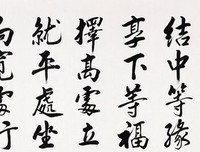 結中等緣
享下等福
擇高處立
就平處坐
向寬處行